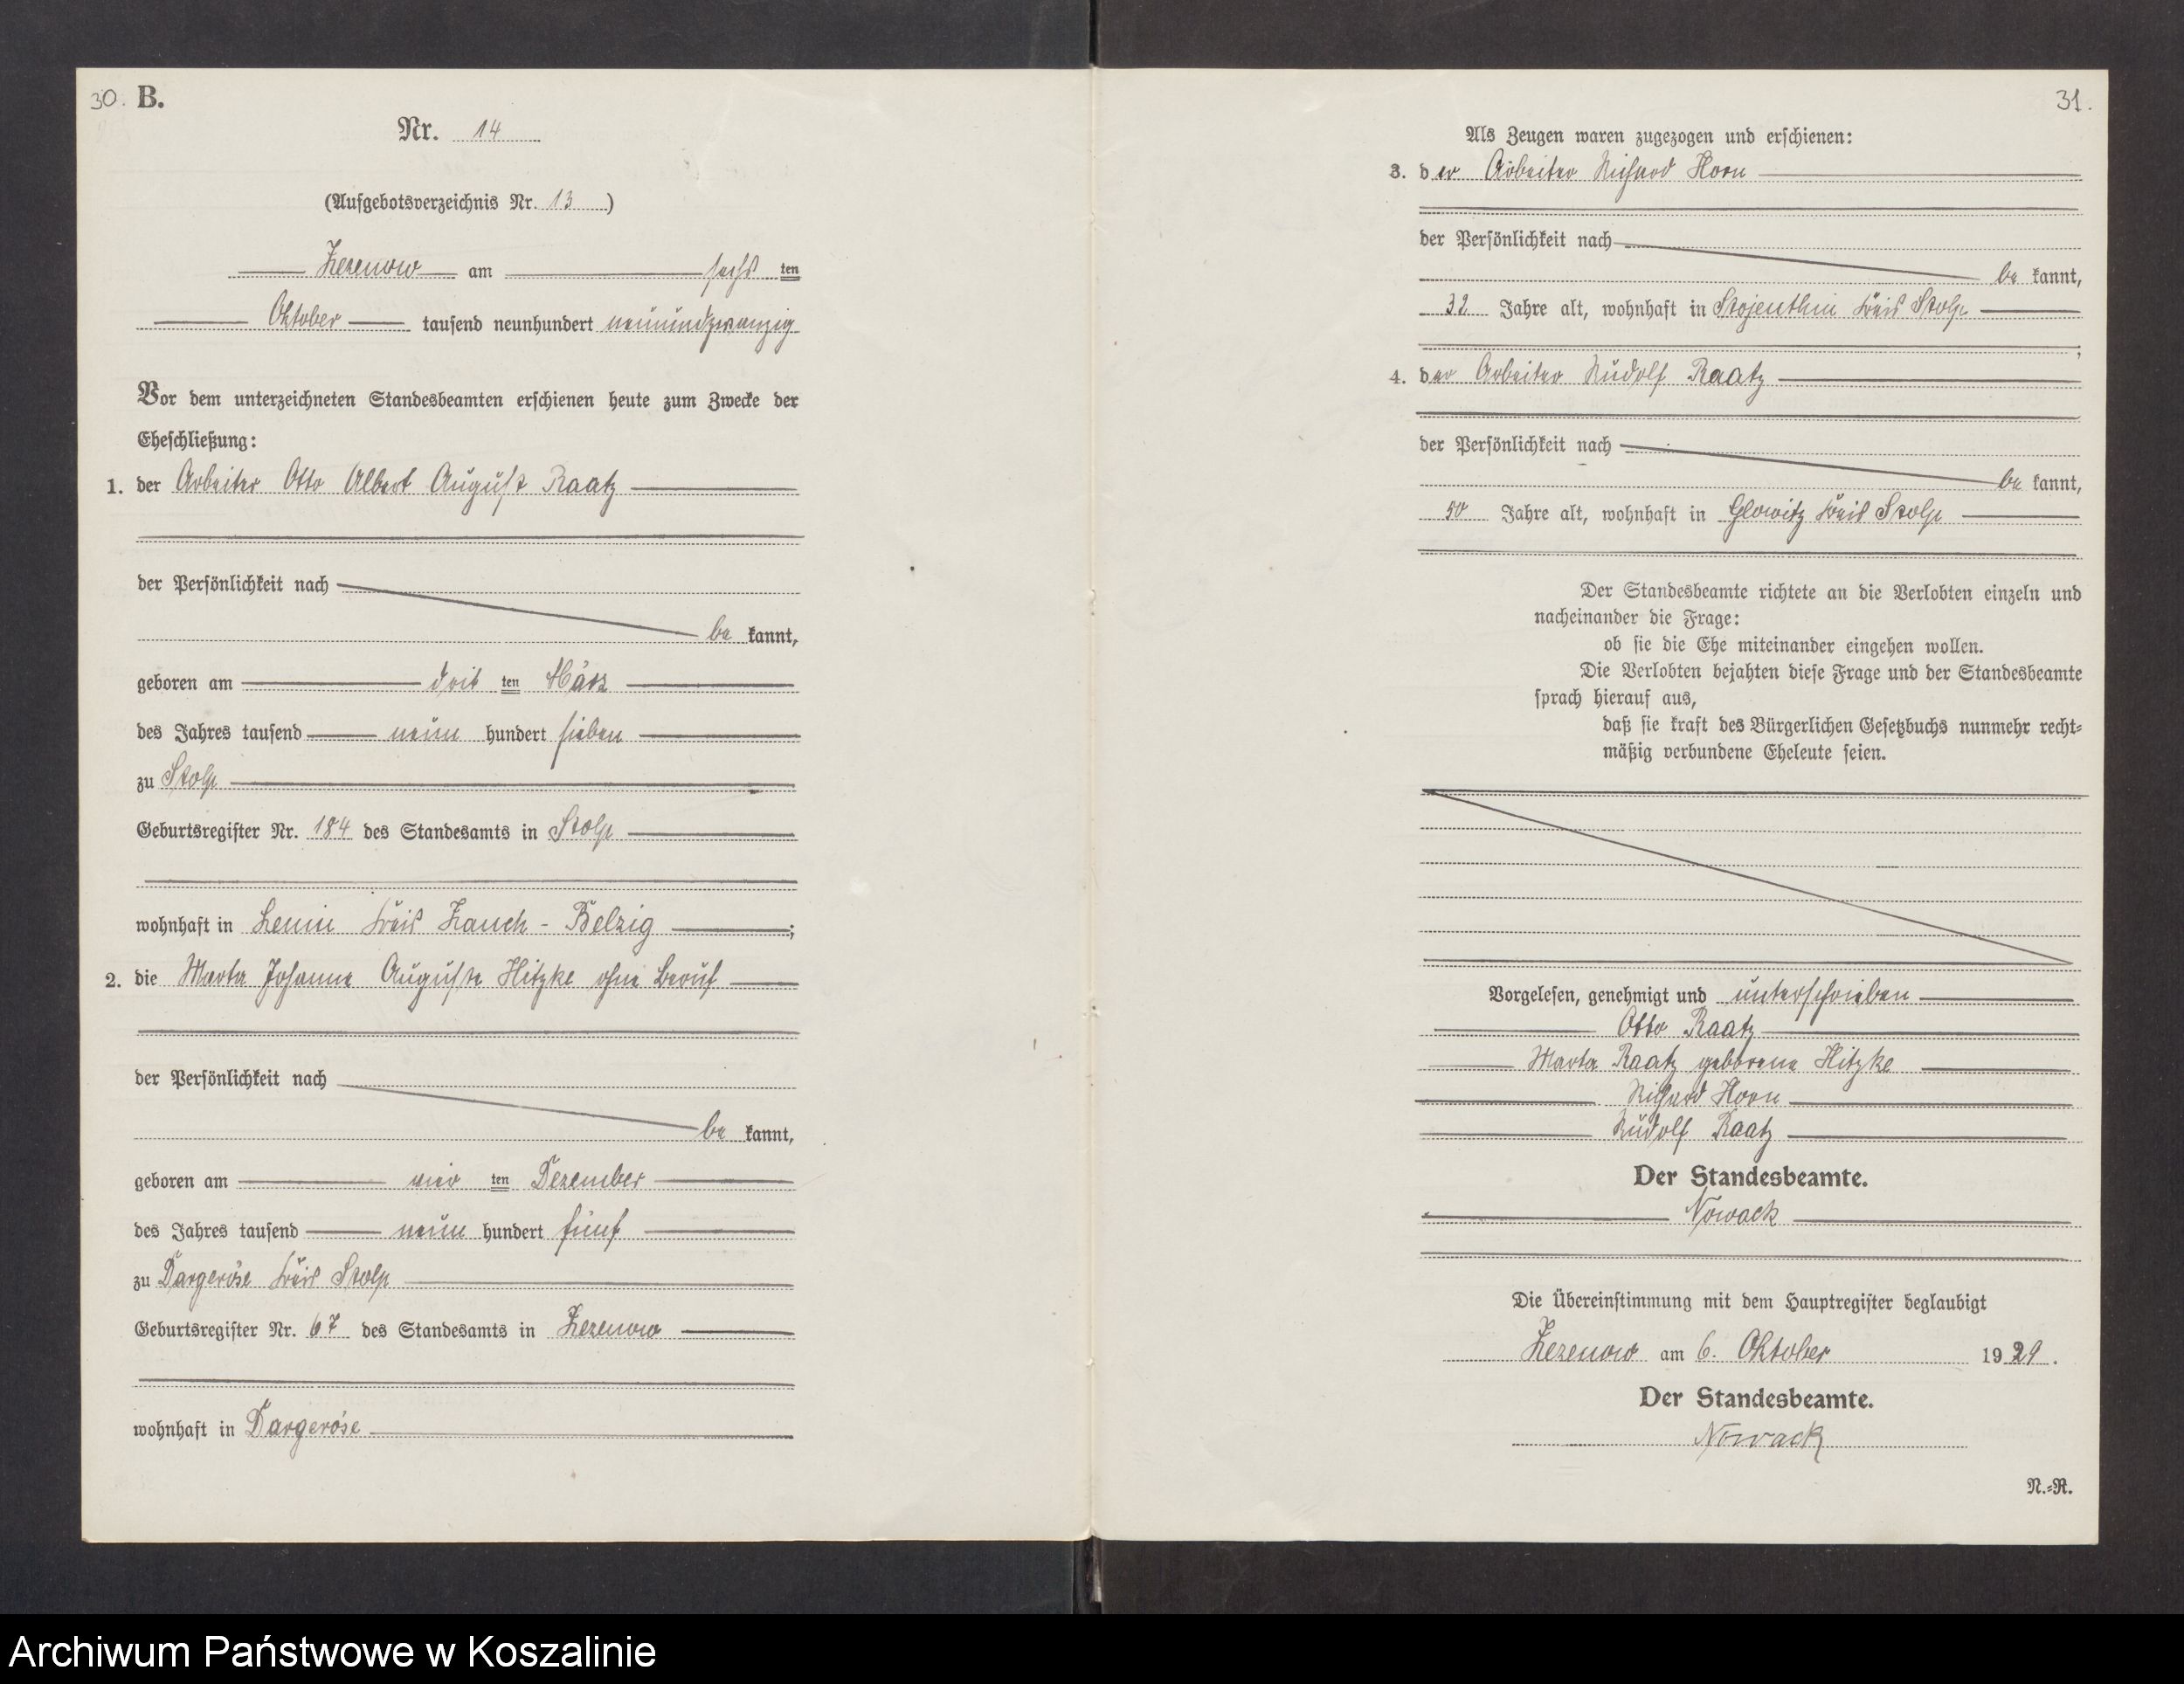 30. B.
Nr. 14
(Aufgebotsverzeichnis Nr. 13)
Zezenow am sechs ten
Oktober tausend neunhundert neunundzwanzig
Vor dem unterzeichneten Standesbeamten erschienen heute zum Zwecke der
Eheschließung:
1. der Arbeiter Otto Albert August Raatz
der Persönlichkeit nach
be kannt,
geboren am drit ten März
des Jahres tausend neun hundert sieben
zu Stolp
Geburtsregister Nr. 184 des Standesamts in Stolp
wohnhaft in Lenin Kreis Zauch - Belzig ;
2. die Marta Johanne Auguste Hitzke ohne Beruf
der Persönlichkeit nach
be kannt,
geboren am vier ten Dezember
des Jahres tausend neun hundert fünf
zu Dargeröse Kreis Stolp
Geburtsregister Nr. 67 des Standesamts in Zezenow
wohnhaft in Dargeröse
31.
Als Zeugen waren zugezogen und erschienen:
3. der Arbeiter Richard Horn
der Persönlichkeit nach
be kannt,
32 Jahre alt, wohnhaft in Stojenthin Kreis Stolp
;
4. der Arbeiter Rudolf Raatz
der Persönlichkeit nach
be kannt,
50 Jahre alt, wohnhaft in Glowitz Kreis Stolp
Der Standesbeamte richtete an die Verlobten einzeln und
nacheinander die Frage:
ob sie die Ehe miteinander eingehen wollen.
Die Verlobten bejahten diese Frage und der Standesbeamte
sprach hierauf aus,
daß sie kraft des Bürgerlichen Gesetzbuchs nunmehr recht-
mäßig verbundene Eheleute seien.
Vorgelesen, genehmigt und unterschrieben
Otto Raatz
Marta Raatz geborene Hitzke
Richard Horn
Rudolf Raatz
Der Standesbeamte.
Nowack
Die Übereinstimmung mit dem Hauptregister beglaubigt
Zezenow am 6. Oktober 1929.
Der Standesbeamte.
Nowack
N.-R.
Archiwum Państwowe w Koszalinie